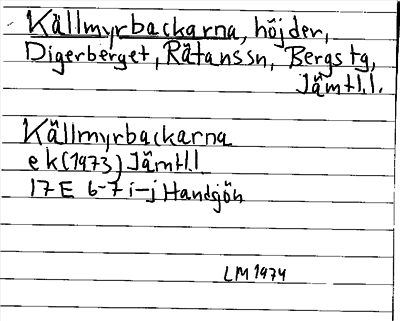 Källmyrbackarna, höjder,
Digerberget, Rätanssn, Bergs tg,
Jämtl.l.
Källmyrbackarna
ek (1973) Jämtl.l
17 E 6-7 i-j Handsjön
LM 1974